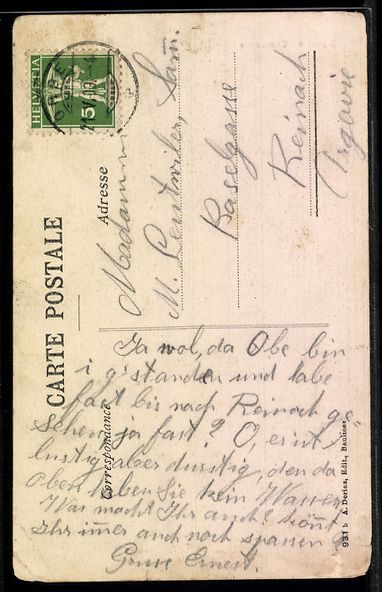 CARTE POSTALE
Correspondance
Adresse
HELVETIA
5
ORBE
Madame
M. Leutwiler, Sam.
Baselgasse
Reinach
(Argovie)
Ja wol, da Obe bin
i g'standen und habe
fast bis nach Reinach ge-
sehen, ja fast? O, es ist
lustig aber durstig, den da
Oben haben Sie kein Wasser.
Was macht Ihr auch? könnt
Ihr immer auch noch spassen?
Gruss Ernest.
931 b A. Deriaz, Edit., Baulmes